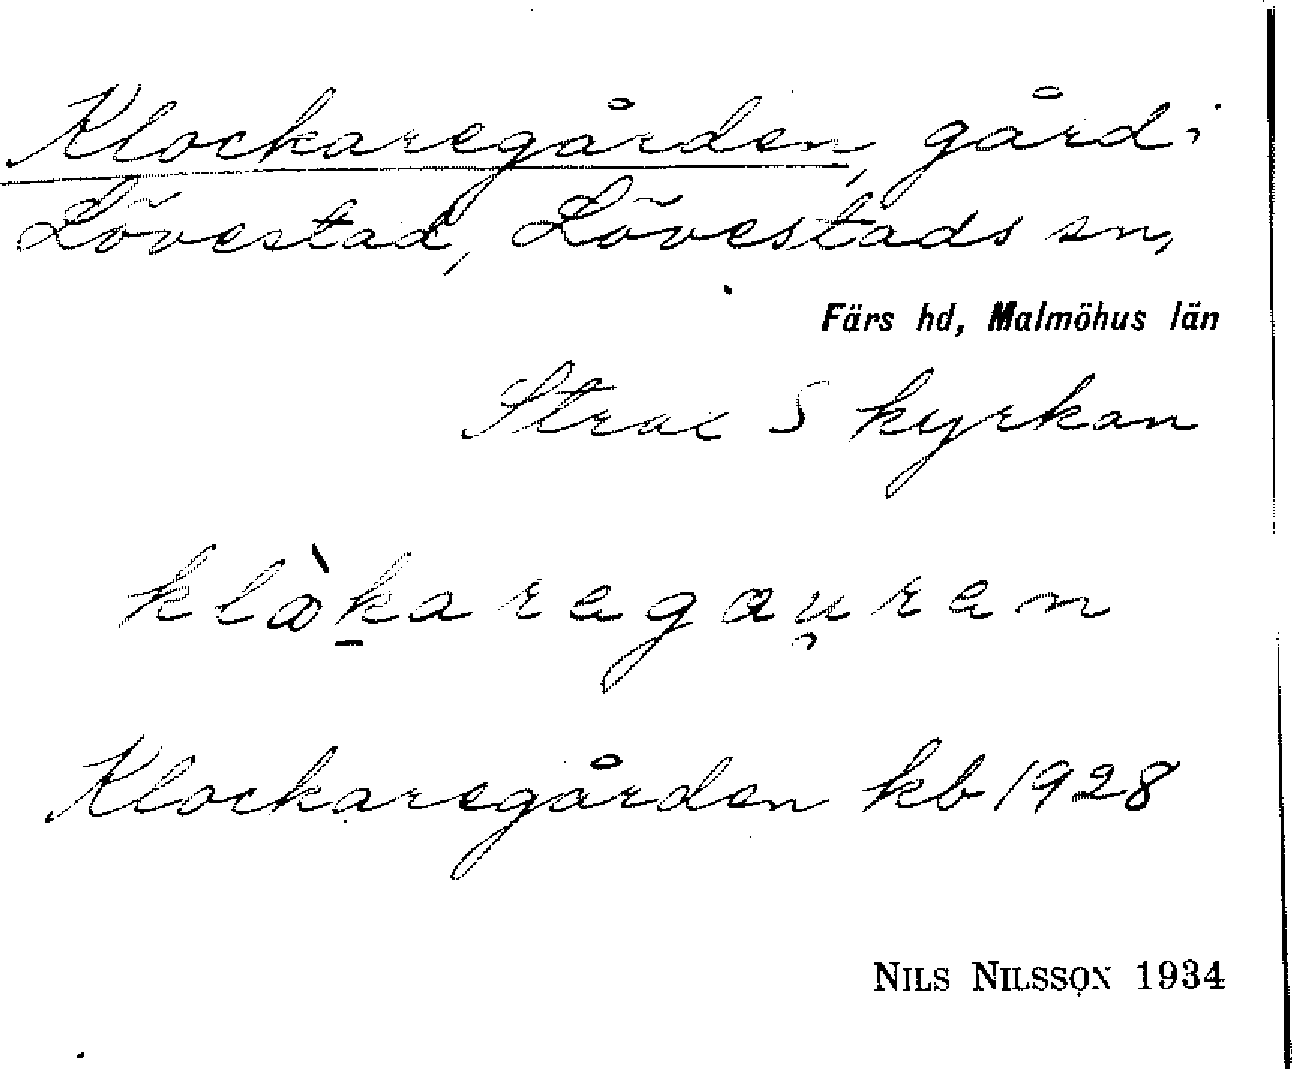 Klockaregården, gård i
Lövestad, Lövestads sn,
Färs hd, Malmöhus län
Strax S kyrkan
klàk̠aregau̯ren
Klockaregården kb 1928
NILS NILSSON 1934